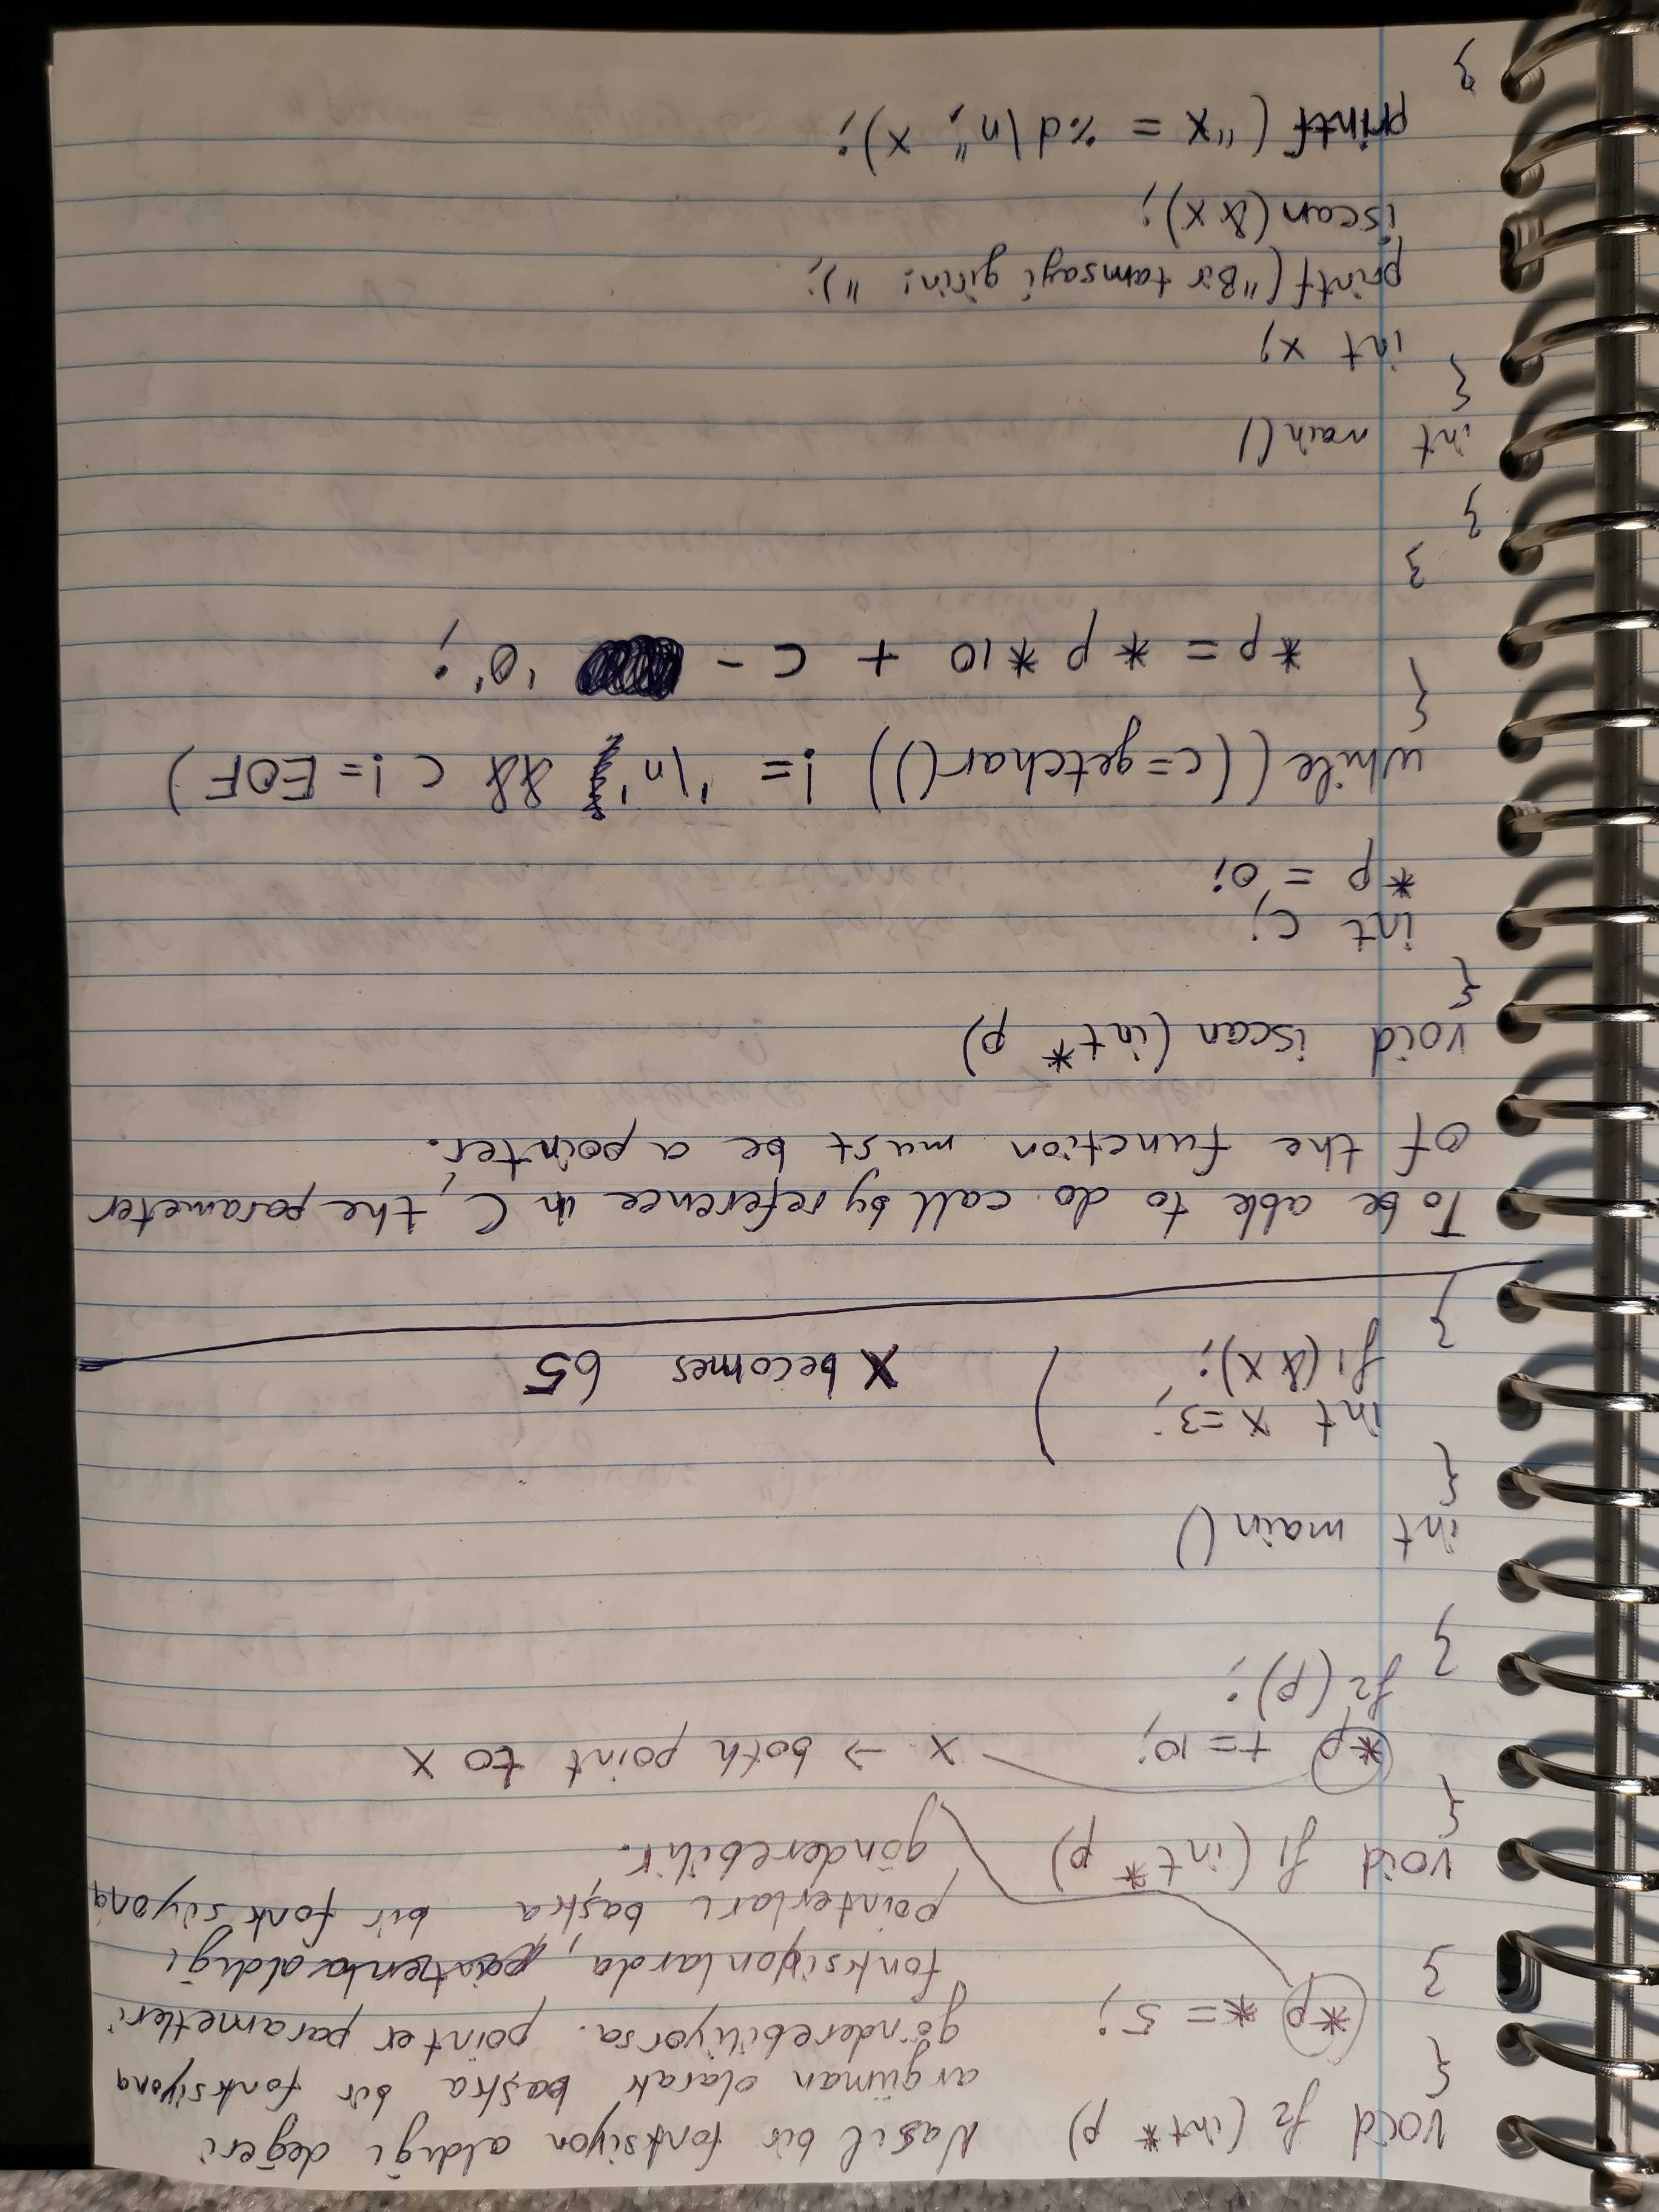 void f2 (int* p)
{
*p *= 5;
}
Nasıl bir fonksiyon aldığı değeri
argüman olarak başka bir fonksiyona
gönderebiliyorsa. pointer parametleri
fonksiyonlarda, aldığı
pointerları başka bir fonksiyona
gönderebilir.
void f1 (int* p)
{
*p += 10;
f2 (p);
}
x → both point to x
int main()
{
int x = 3;
f1 (&x);
}
X becomes 65
To be able to do call by reference in C, the parameter
of the function must be a pointer.
void iscan (int* p)
{
int c;
*p = 0;
while ((c=getchar()) != '\n' && c != EOF)
{
*p = *p *10 + c - '0';
}
}
int main()
{
int x;
printf ("Bir tamsayi girin: ");
iscan (&x);
printf ("x = %d\n", x);
}